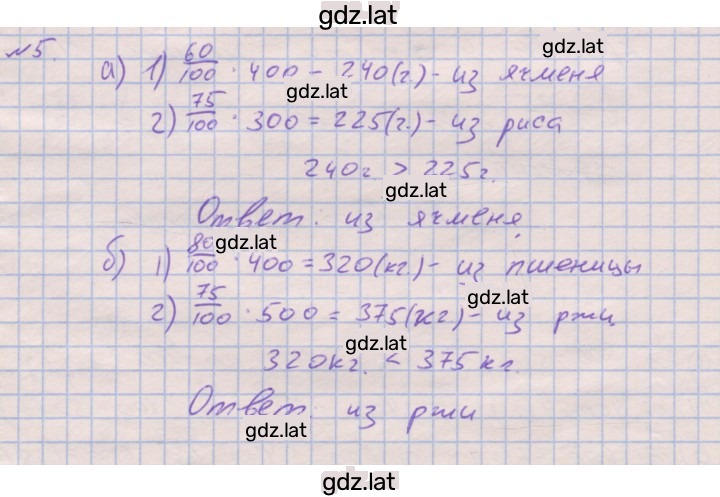 gdz.lat
№5.
а) 1) 60/100 · 400 = 240(г.) - из ячменя
gdz.lat
2) 75/100 · 300 = 225(г.) - из риса
240г. > 225г.
gdz.lat
Ответ. из ячменя.
gdz.lat
б) 1) 80/100 · 400 = 320(кг.) - из пшеницы
gdz.lat
2) 75/100 · 500 = 375(кг) - из ржи
gdz.lat
320кг. < 375кг.
Ответ. из ржи
gdz.lat
gdz.lat